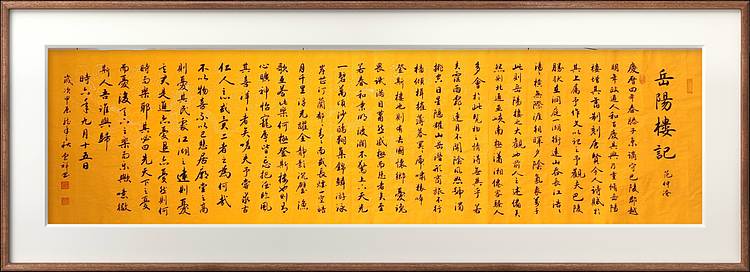 岳陽樓記
范仲淹
慶曆四年春滕子京謫守巴陵郡越
明年政通人和百廢具興乃重修岳陽
樓增其舊制刻唐賢今人詩賦於
其上屬予作文以記之予觀夫巴陵
勝狀在洞庭一湖銜遠山吞長江浩浩
湯湯橫無際涯朝暉夕陰氣象萬千
此則岳陽樓之大觀也前人之述備矣
然則北通巫峽南極瀟湘遷客騷人
多會於此覽物之情得無異乎若
夫霪雨霏霏連月不開陰風怒號濁
浪排空日星隱耀山岳潛形商旅不行
檣傾楫摧薄暮冥冥虎嘯猿啼
登斯樓也則有去國懷鄉憂讒
畏譏滿目蕭然感極而悲者矣至
若春和景明波瀾不驚上下天光
一碧萬頃沙鷗翔集錦鱗游泳
岸芷汀蘭郁郁青青而或長煙一空皓
月千里浮光躍金靜影沉璧漁
歌互答此樂何極登斯樓也則有
心曠神怡寵辱皆忘把酒臨風
其喜洋洋者矣嗟夫予嘗求古
仁人之心或異二者之為何哉
不以物喜不以己悲居廟堂之高
則憂其民處江湖之遠則憂
其君是進亦憂退亦憂然則何
時而樂耶其必曰先天下之憂
而憂後天下之樂而樂歟噫微
斯人吾誰與歸
時六年九月十五日
歲次甲辰